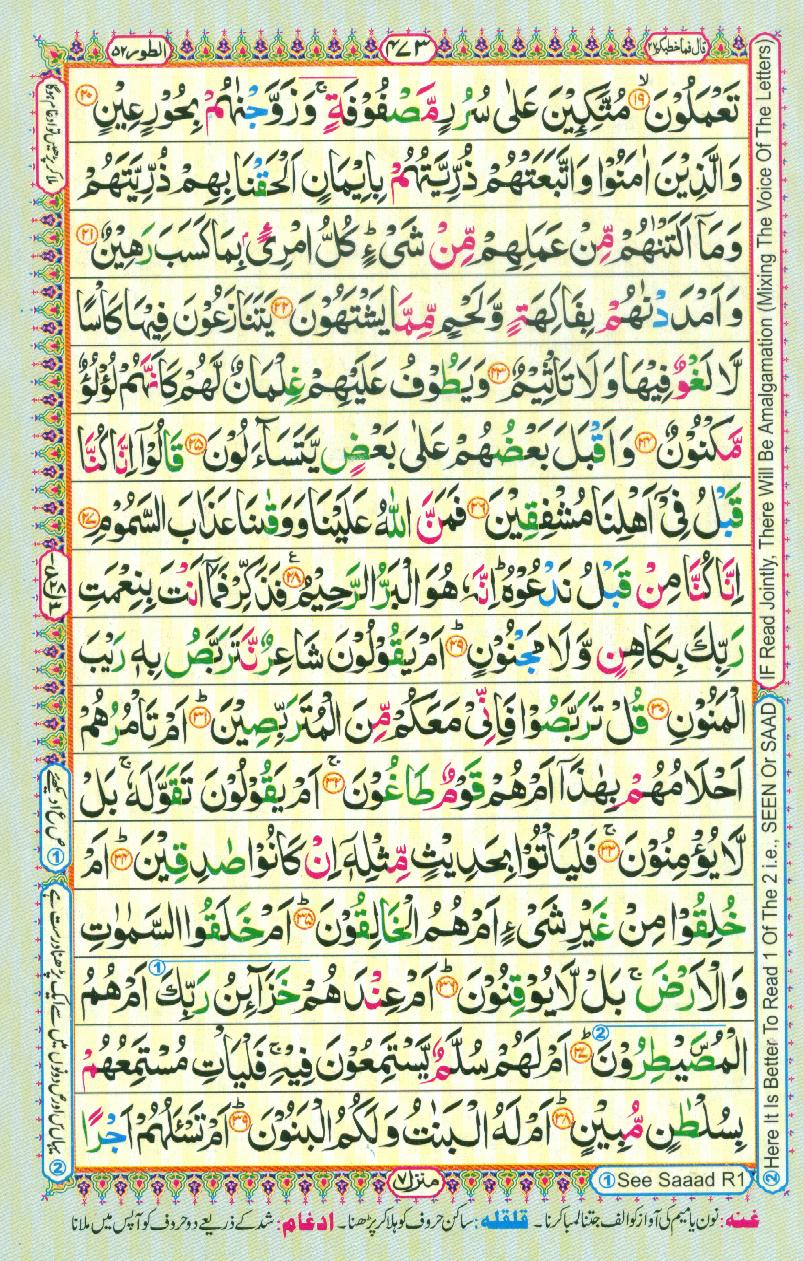 قال فما خطبکم ۲۷
۴۷۳
الطور ۵۲
تَعۡمَلُوۡنَۙ‏ ﴿۱۹﴾ مُتَّكِـِٕيۡنَ عَلٰى سُرُرٍ مَّصۡفُوۡفَةٍ‌ ۚ وَزَوَّجۡنٰهُمۡ بِحُوۡرٍ عِيۡنٍ‏ ﴿۲۰﴾
وَالَّذِيۡنَ اٰمَنُوۡا وَاتَّبَعَتۡهُمۡ ذُرِّيَّتُهُمۡ بِاِيۡمَانٍ اَلۡحَـقۡنَا بِهِمۡ ذُرِّيَّتَهُمۡ
وَمَاۤ اَلَـتۡنٰهُمۡ مِّنۡ عَمَلِهِمۡ مِّنۡ شَىۡءٍ‌ؕ كُلُّ امۡرِیءٍۢ بِمَا كَسَبَ رَهِيۡنٌ‏ ﴿۲۱﴾
وَاَمۡدَدۡنٰهُمۡ بِفَاكِهَةٍ وَّلَحۡمٍ مِّمَّا يَشۡتَهُوۡنَ‏ ﴿۲۲﴾ يَـتَـنَازَعُوۡنَ فِيۡهَا كَاۡسًا
لَّا لَغۡوٌ فِيۡهَا وَلَا تَاۡثِيۡمٌ‏ ﴿۲۳﴾ وَيَطُوۡفُ عَلَيۡهِمۡ غِلۡمَانٌ لَّهُمۡ كَاَنَّهُمۡ لُـؤۡلُـؤٌ
مَّكۡنُوۡنٌ‏ ﴿۲۴﴾ وَاَقۡبَلَ بَعۡضُهُمۡ عَلٰى بَعۡضٍ يَّتَسَآءَلُوۡنَ‏ ﴿۲۵﴾ قَالُـوۡۤا اِنَّا كُـنَّا
قَبۡلُ فِىۡۤ اَهۡلِنَا مُشۡفِقِيۡنَ‏ ﴿۲۶﴾ فَمَنَّ اللّٰهُ عَلَيۡنَا وَوَقٰٮنَا عَذَابَ السَّمُوۡمِ‏ ﴿۲۷﴾
اِنَّا كُـنَّا مِنۡ قَبۡلُ نَدۡعُوۡهُ‌ؕ اِنَّهٗ هُوَ الۡبَـرُّ الرَّحِيۡمُ‏ ﴿۲۸﴾ فَذَكِّرۡ فَمَاۤ اَنۡتَ بِنِعۡمَتِ
رَبِّكَ بِكَاهِنٍ وَّلَا مَجۡنُوۡنٍؕ‏ ﴿۲۹﴾ اَمۡ يَقُوۡلُوۡنَ شَاعِرٌ نَّتَـرَبَّصُ بِهٖ رَيۡبَ
الۡمَنُوۡنِ‏ ﴿۳۰﴾ قُلۡ تَرَبَّصُوۡا فَاِنِّىۡ مَعَكُمۡ مِّنَ الۡمُتَـرَبِّصِيۡنَؕ‏ ﴿۳۱﴾ اَمۡ تَاۡمُرُهُمۡ
اَحۡلَامُهُمۡ بِهٰذَآ‌ اَمۡ هُمۡ قَوۡمٌ طَاغُوۡنَ‌ۚ‏ ﴿۳۲﴾ اَمۡ يَقُوۡلُوۡنَ تَقَوَّلَهٗ‌ ۚ بَلْ
لَّا يُؤۡمِنُوۡنَ‌ ۚ‏ ﴿۳۳﴾ فَلۡيَاۡتُوۡا بِحَدِيۡثٍ مِّثۡلِهٖۤ اِنۡ كَانُوۡا صٰدِقِيۡنَؕ‏ ﴿۳۴﴾ اَمۡ
خُلِقُوۡا مِنۡ غَيۡرِ شَىۡءٍ اَمۡ هُمُ الۡخٰلِقُوۡنَؕ‏ ﴿۳۵﴾ اَمۡ خَلَـقُوا السَّمٰوٰتِ
وَالۡاَرۡضَ‌ۚ بَلْ لَّا يُوۡقِنُوۡنَؕ‏ ﴿۳۶﴾ اَمۡ عِنۡدَهُمۡ خَزَآٮِٕنُ رَبِّكَ اَمۡ هُمُ ①
الۡمُصَۜيۡطِرُوۡنَؕ‏ ﴿۳۷﴾ ② اَمۡ لَهُمۡ سُلَّمٌ يَّسۡتَمِعُوۡنَ فِيۡهِ‌ ۚ فَلۡيَاۡتِ مُسۡتَمِعُهُمۡ
بِسُلۡطٰنٍ مُّبِيۡنٍؕ‏ ﴿۳۸﴾ اَمۡ لَـهُ الۡبَنٰتُ وَلَـكُمُ الۡبَنُوۡنَؕ‏ ﴿۳۹﴾ اَمۡ تَسۡـَٔـلُهُمۡ اَجۡرًا
IF Read Jointly, There Will Be Amalgamation (Mixing The Voice Of The Letters)
② Here It Is Better To Read 1 Of The 2 i.e., SEEN Or SAAD
① See Saaad R1
منزل ۷
غنه: نون یا میم کی آواز کو الف جتنا لمبا کرنا۔ قلقله: ساکن حروف کو ہلا کر پڑھنا۔ ادغام: شد کے ذریعے دو حروف کو آپس میں ملانا